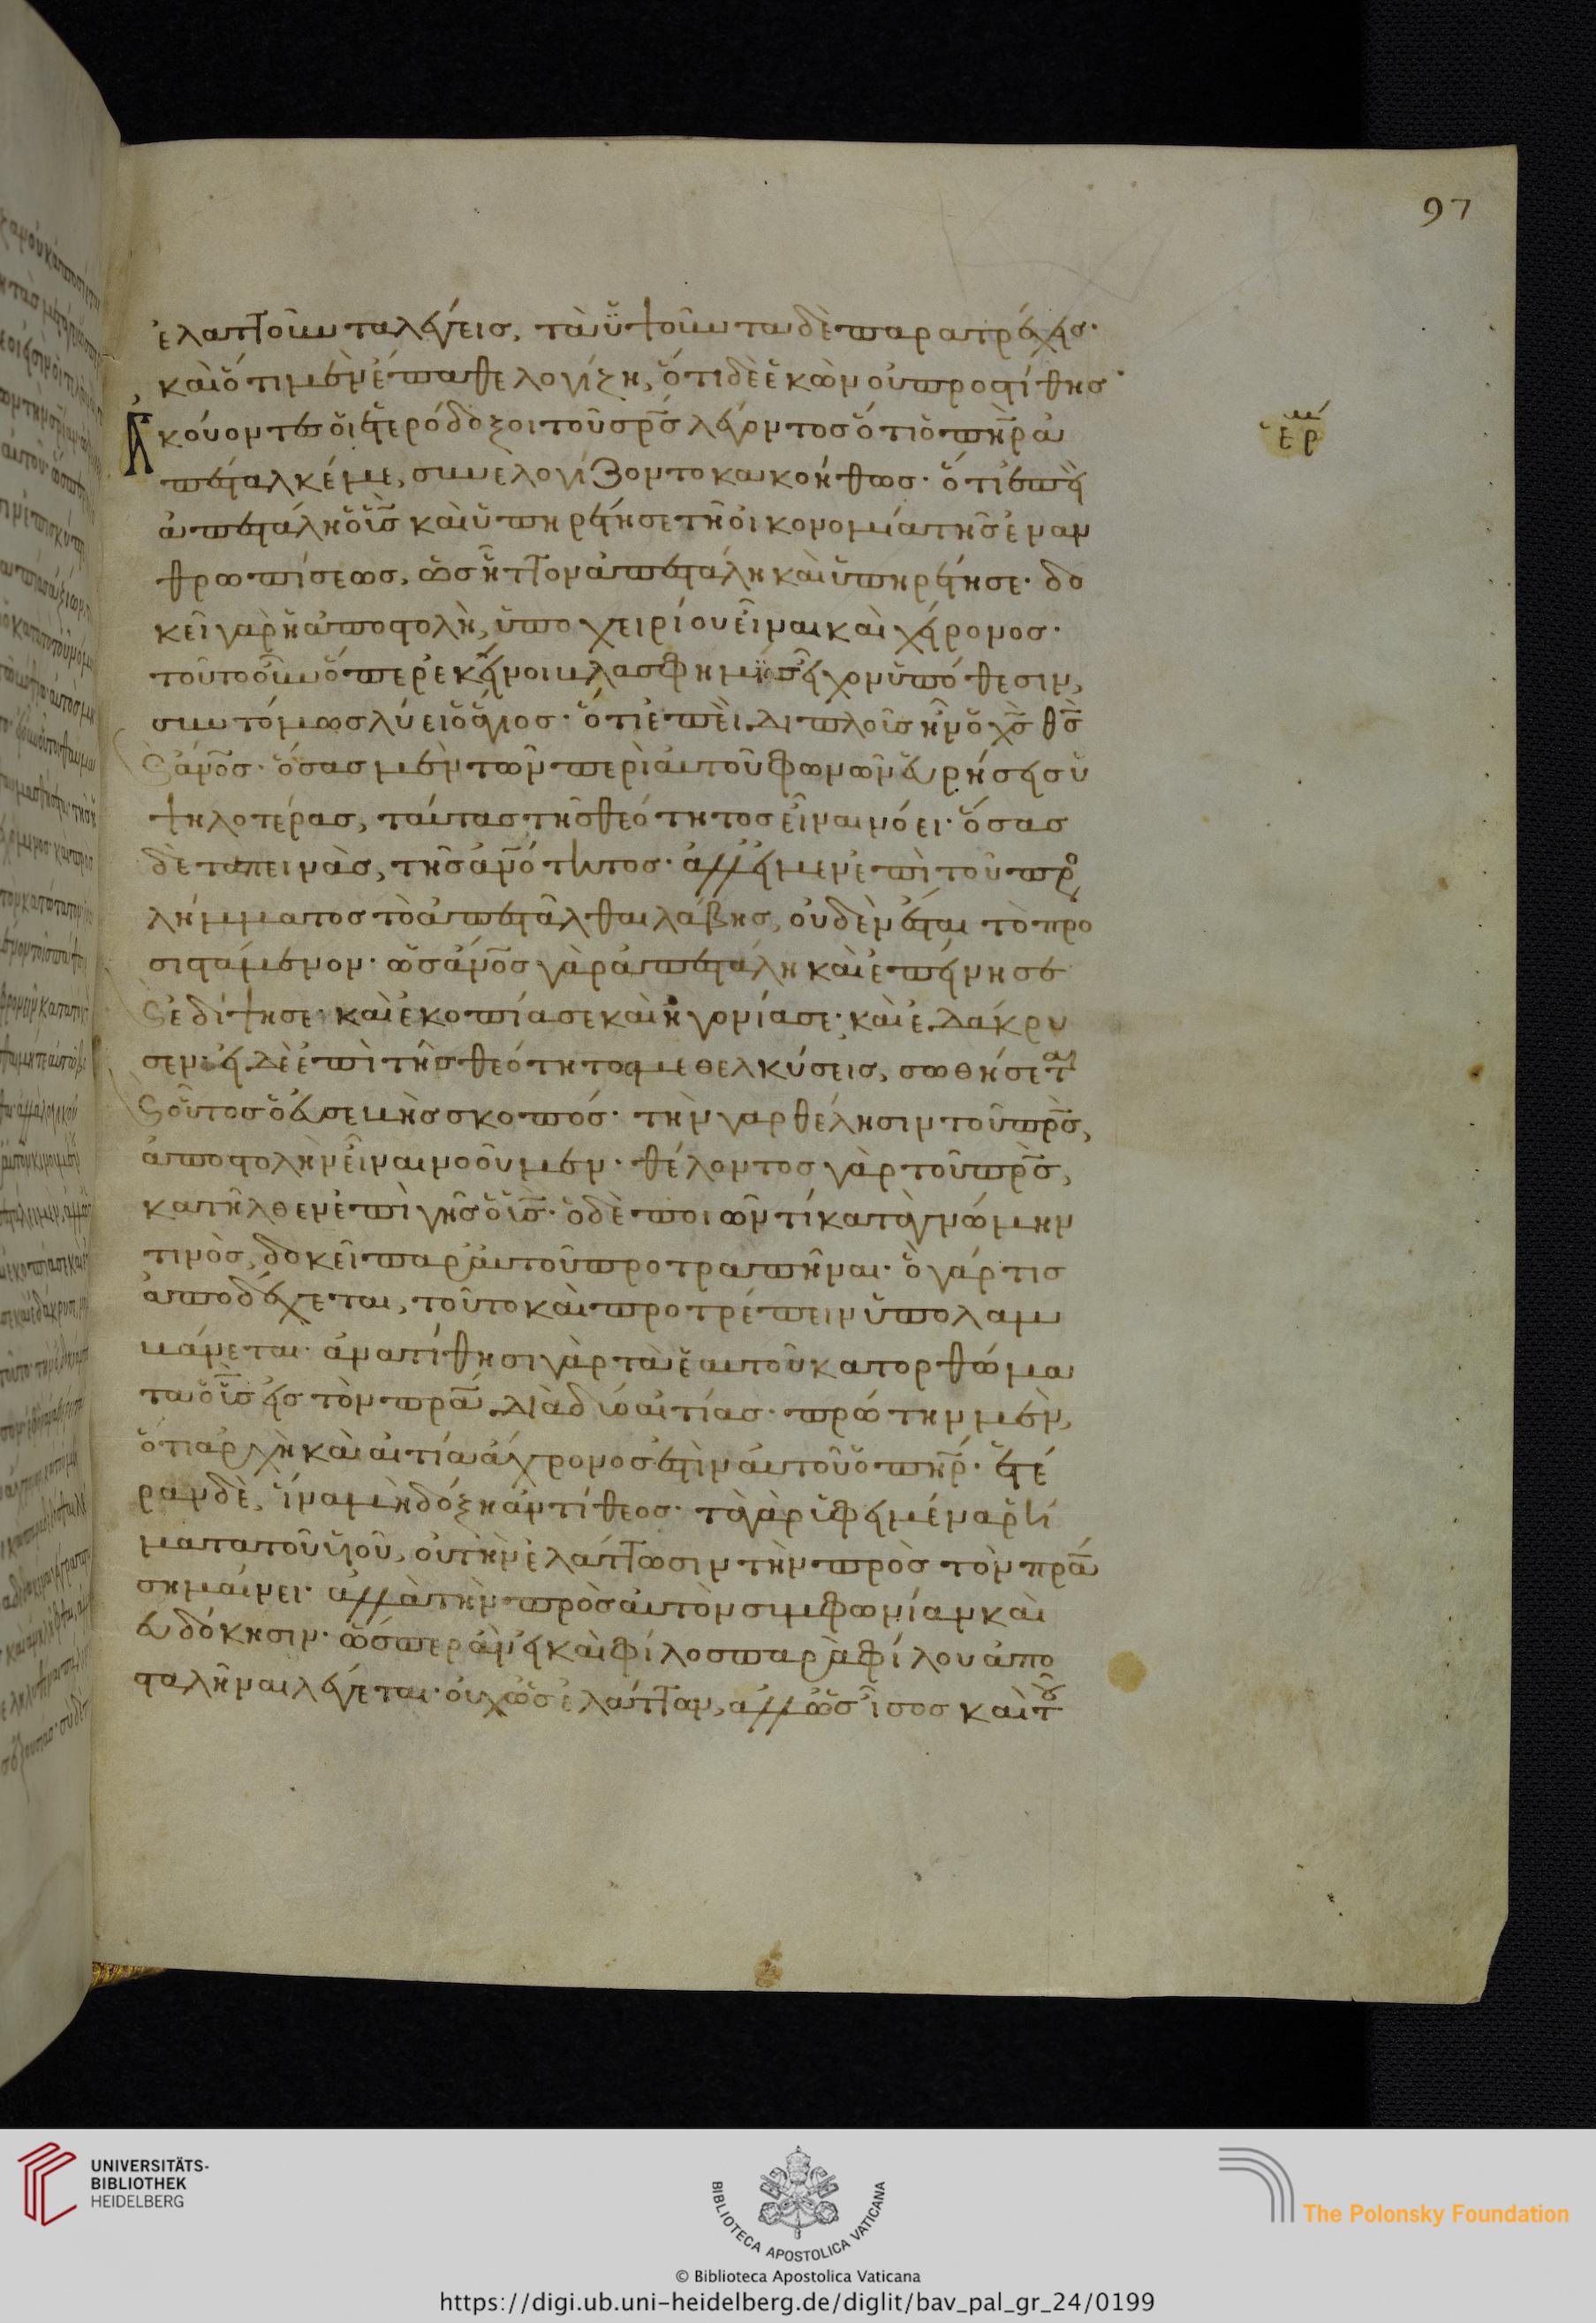 97
ἐλαττοῦντα λέγεις, τὰ ὑψοῦντα δὲ παρατρέχεις·
καὶ ὅτι μὲν ἔπαθε λογίζη, ὅτι δὲ ἑκὼν οὐ προστίθης·
Ἀκούοντες οἱ ἑτερόδοξοι τοῦ σρ̅ς λέγοντος ὅτι ὁ πη̅ρ ἀ
ἑρμ
πέσταλκέ με, συνελογίζοντο κακοήθως· ὅτι ἐπεὶ
ἀπεστάλη ὁ υἱ̅ς καὶ ὑπηρέτησε τῆ οἰκονομία τῆς ἐναν
θρωπίσεως, ὡς ἧττον ἀπεστάλη καὶ ὑπηρέτησε· δο
κεῖ γὰρ ἡ ἀποστολὴ, ὑποχειρίου εἶναι καὶ χείρονος·
τοῦτο οὖν ὅπερ ἐκεῖνοι βλασφημίας εἶχον ὑπόθεσιν,
συντόμως λύει ὁ ἅγιος· ὅτι ἐπεὶ διπλοῦς ἦν ὁ χ̅ς θ̅ς
καὶ ἄν̅ος· ὅσας μὲν τῶν περὶ αὐτοῦ φωνῶν εὑρήσεις ὑ
ψηλοτέρας, ταύτας τῆς θεότητος εἶναι νόει· ὅσας
δὲ ταπεινὰς, τῆς ἀν̅ότητος· ἀλλ' εἰ μὲν ἐπὶ τοῦ προσ
λήμματος τὸ ἀπεστάλθαι λάβης, οὐδὲν ἔσται τὸ προ
σιστάμενον· ὡς ἄν̅ος γὰρ ἀπεστάλη καὶ ἐπείνησε
καὶ ἐδίψησε καὶ ἐκοπίασε καὶ ἠγονίασε· καὶ ἐδάκρυ
σεν· εἰ δὲ ἐπὶ τῆς θεότητος μεθελκύσεις, σωθήσεται
καὶ οὗτος ὁ εὐσεβὴς σκοπός· τὴν γαρ θέλησιν τοῦ πρ̅ς,
ἀποστολὴν εἶναι νοοῦμεν· θέλοντος γὰρ τοῦ πρ̅ς,
κατῆλθεν ἐπὶ γῆς ὁ υἱ̅ς· ὁ δὲ ποιῶν τί κατὰ γνώμην
τινὸς, δοκεῖ παρ' αὐτοῦ προτραπῆναι· ὃ γάρ τις
ἀποδέχεται, τοῦτο καὶ προτρέπειν ὑπολαμ
βάνεται· ἀνατίθησι γὰρ τὰ ἑαυτοῦ κατορθώμα
τα ὁ υἱ̅ς εἰς τὸν πρ̅α, διὰ δύο αἰτίας· πρώτην μὲν,
ὅτι ἀρχὴ καὶ αἰτία ἄχρονος ἐστὶν αὐτοῦ ὁ πη̅ρ· ἑτέ
ραν δὲ, ἵνα μὴ δόξη ἀντίθεος· τὰ γὰρ ὑφειμένα ῥή
ματα τοῦ υἱοῦ, οὐ τὴν ἐλάττωσιν τὴν πρὸς τὸν πρ̅α
σημαίνει· ἀλλὰ τὴν πρὸς αὐτὸν συμφωνίαν καὶ
εὐδόκησιν· ὥσπερ ἂν εἰ καὶ φίλος παρὰ φίλου ἀπο
σταλῆναι λέγεται· οὐχ ὡς ἐλάττων, ἀλλ' ὡς ἴσος καὶ τοῦ
UNIVERSITÄTS-
BIBLIOTHEK
HEIDELBERG
BIBLIOTECA APOSTOLICA VATICANA
The Polonsky Foundation
© Biblioteca Apostolica Vaticana
https://digi.ub.uni-heidelberg.de/diglit/bav_pal_gr_24/0199